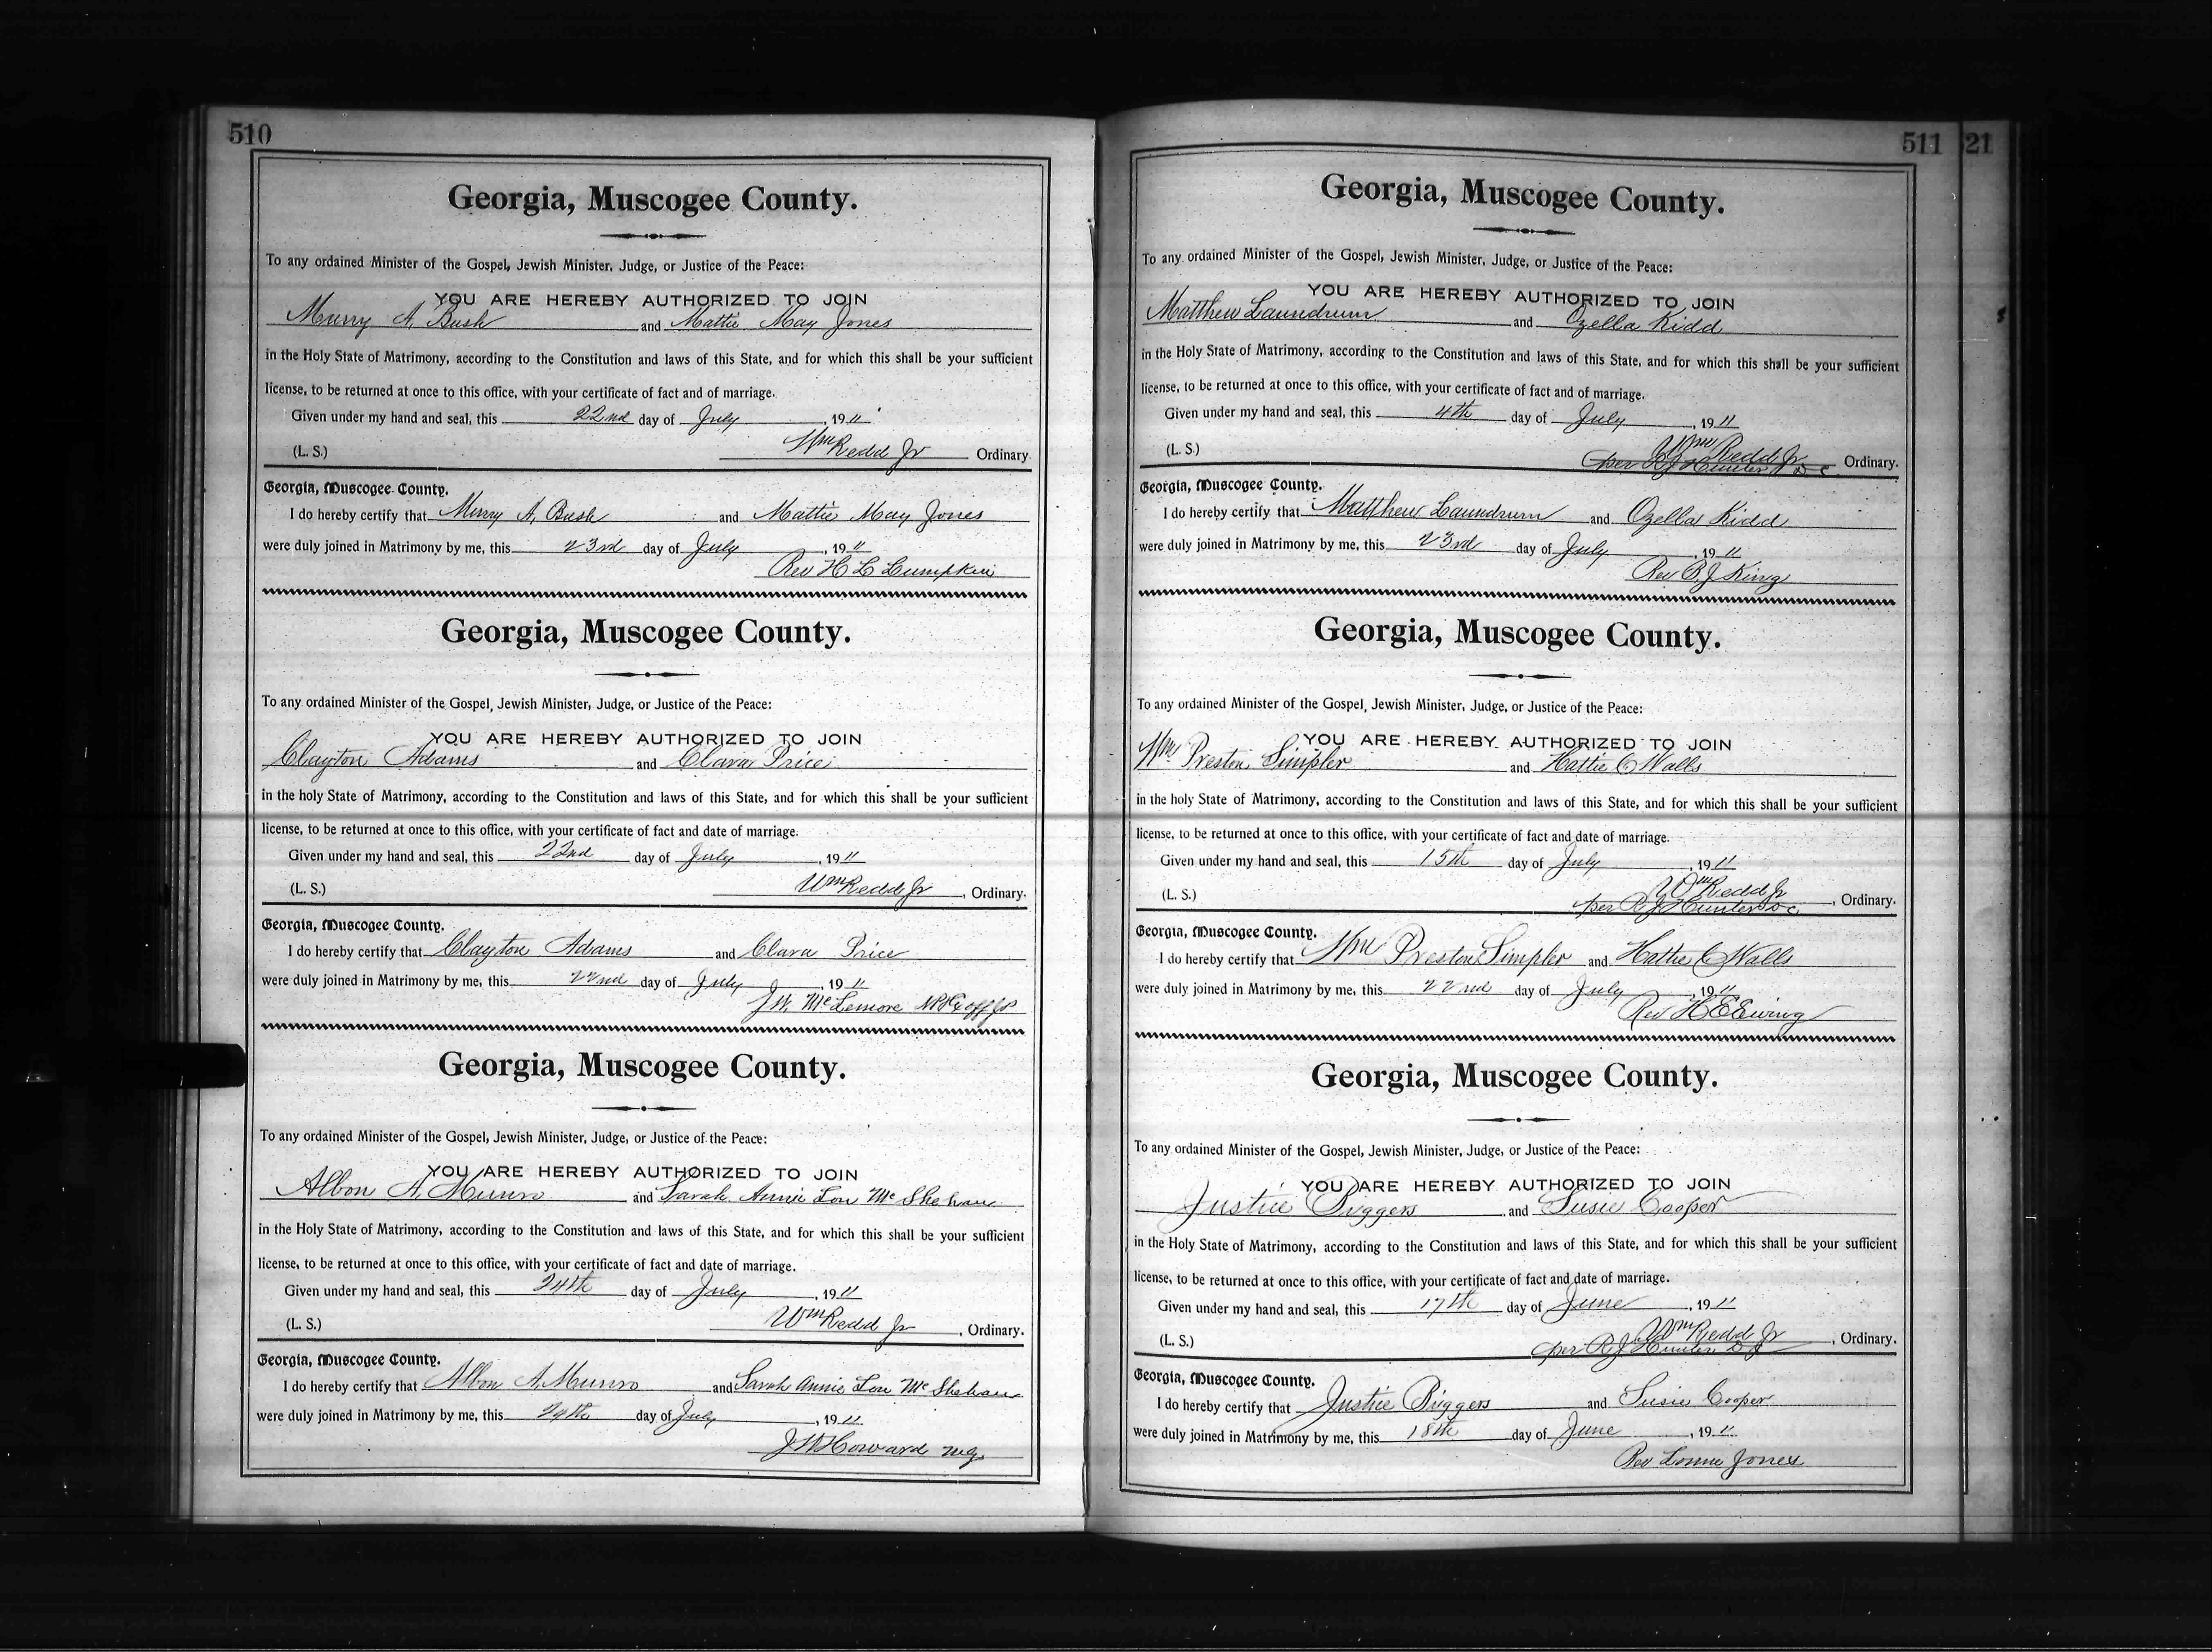 510
Georgia, Muscogee County.
To any ordained Minister of the Gospel, Jewish Minister, Judge, or Justice of the Peace:
YOU ARE HEREBY AUTHORIZED TO JOIN
Murry A. Bush and Mattie May Jones
in the Holy State of Matrimony, according to the Constitution and laws of this State, and for which this shall be your sufficient
license, to be returned at once to this office, with your certificate of fact and of marriage.
Given under my hand and seal, this 22nd day of July, 1911
(L. S.) Wm Redd Jr Ordinary
Georgia, Muscogee County.
I do hereby certify that Murry A. Bush and Mattie May Jones
were duly joined in Matrimony by me, this 23rd day of July, 1911
Rev H L Lumpkin
Georgia, Muscogee County.
To any ordained Minister of the Gospel, Jewish Minister, Judge, or Justice of the Peace:
YOU ARE HEREBY AUTHORIZED TO JOIN
Clayton Adams and Clara Price
in the holy State of Matrimony, according to the Constitution and laws of this State, and for which this shall be your sufficient
license, to be returned at once to this office, with your certificate of fact and date of marriage.
Given under my hand and seal, this 22nd day of July, 1911
(L. S.) Wm Redd Jr, Ordinary.
Georgia, Muscogee County.
I do hereby certify that Clayton Adams and Clara Price
were duly joined in Matrimony by me, this 22nd day of July, 1911
J. W. McLemore
Georgia, Muscogee County.
To any ordained Minister of the Gospel, Jewish Minister, Judge, or Justice of the Peace:
YOU ARE HEREBY AUTHORIZED TO JOIN
Albon A. Munro and Sarah Annie Lou McShehan
in the Holy State of Matrimony, according to the Constitution and laws of this State, and for which this shall be your sufficient
license, to be returned at once to this office, with your certificate of fact and date of marriage.
Given under my hand and seal, this 24th day of July, 1911
(L. S.) Wm Redd Jr, Ordinary.
Georgia, Muscogee County.
I do hereby certify that Albon A. Munro and Sarah Annie Lou McShehan
were duly joined in Matrimony by me, this 24th day of July, 1911
J W Howard M.G.
511 21
Georgia, Muscogee County.
To any ordained Minister of the Gospel, Jewish Minister, Judge, or Justice of the Peace:
YOU ARE HEREBY AUTHORIZED TO JOIN
Matthew Laundrum and Ozella Kidd
in the Holy State of Matrimony, according to the Constitution and laws of this State, and for which this shall be your sufficient
license, to be returned at once to this office, with your certificate of fact and of marriage.
Given under my hand and seal, this 4th day of July, 1911
Wm Redd Jr
(L. S.) per R J Hunter D C Ordinary.
Georgia, Muscogee County.
I do hereby certify that Matthew Laundrum and Ozella Kidd
were duly joined in Matrimony by me, this 23rd day of July, 1911
Rev B. J. King
Georgia, Muscogee County.
To any ordained Minister of the Gospel, Jewish Minister, Judge, or Justice of the Peace:
YOU ARE HEREBY AUTHORIZED TO JOIN
Wm Preston Simpler and Hattie C Walls
in the holy State of Matrimony, according to the Constitution and laws of this State, and for which this shall be your sufficient
license, to be returned at once to this office, with your certificate of fact and date of marriage.
Given under my hand and seal, this 15th day of July, 1911
Wm Redd Jr
(L. S.) per R J Hunter D C, Ordinary.
Georgia, Muscogee County.
I do hereby certify that Wm Preston Simpler and Hattie C Walls
were duly joined in Matrimony by me, this 22nd day of July, 1911
Rev H E Ewing
Georgia, Muscogee County.
To any ordained Minister of the Gospel, Jewish Minister, Judge, or Justice of the Peace:
YOU ARE HEREBY AUTHORIZED TO JOIN
Justice Biggers and Susie Cooper
in the Holy State of Matrimony, according to the Constitution and laws of this State, and for which this shall be your sufficient
license, to be returned at once to this office, with your certificate of fact and date of marriage.
Given under my hand and seal, this 17th day of June, 1911
Wm Redd Jr
(L. S.) per R J Hunter, Ordinary.
Georgia, Muscogee County.
I do hereby certify that Justice Biggers and Susie Cooper
were duly joined in Matrimony by me, this 18th day of June, 1911
Rev Lonnie Jones